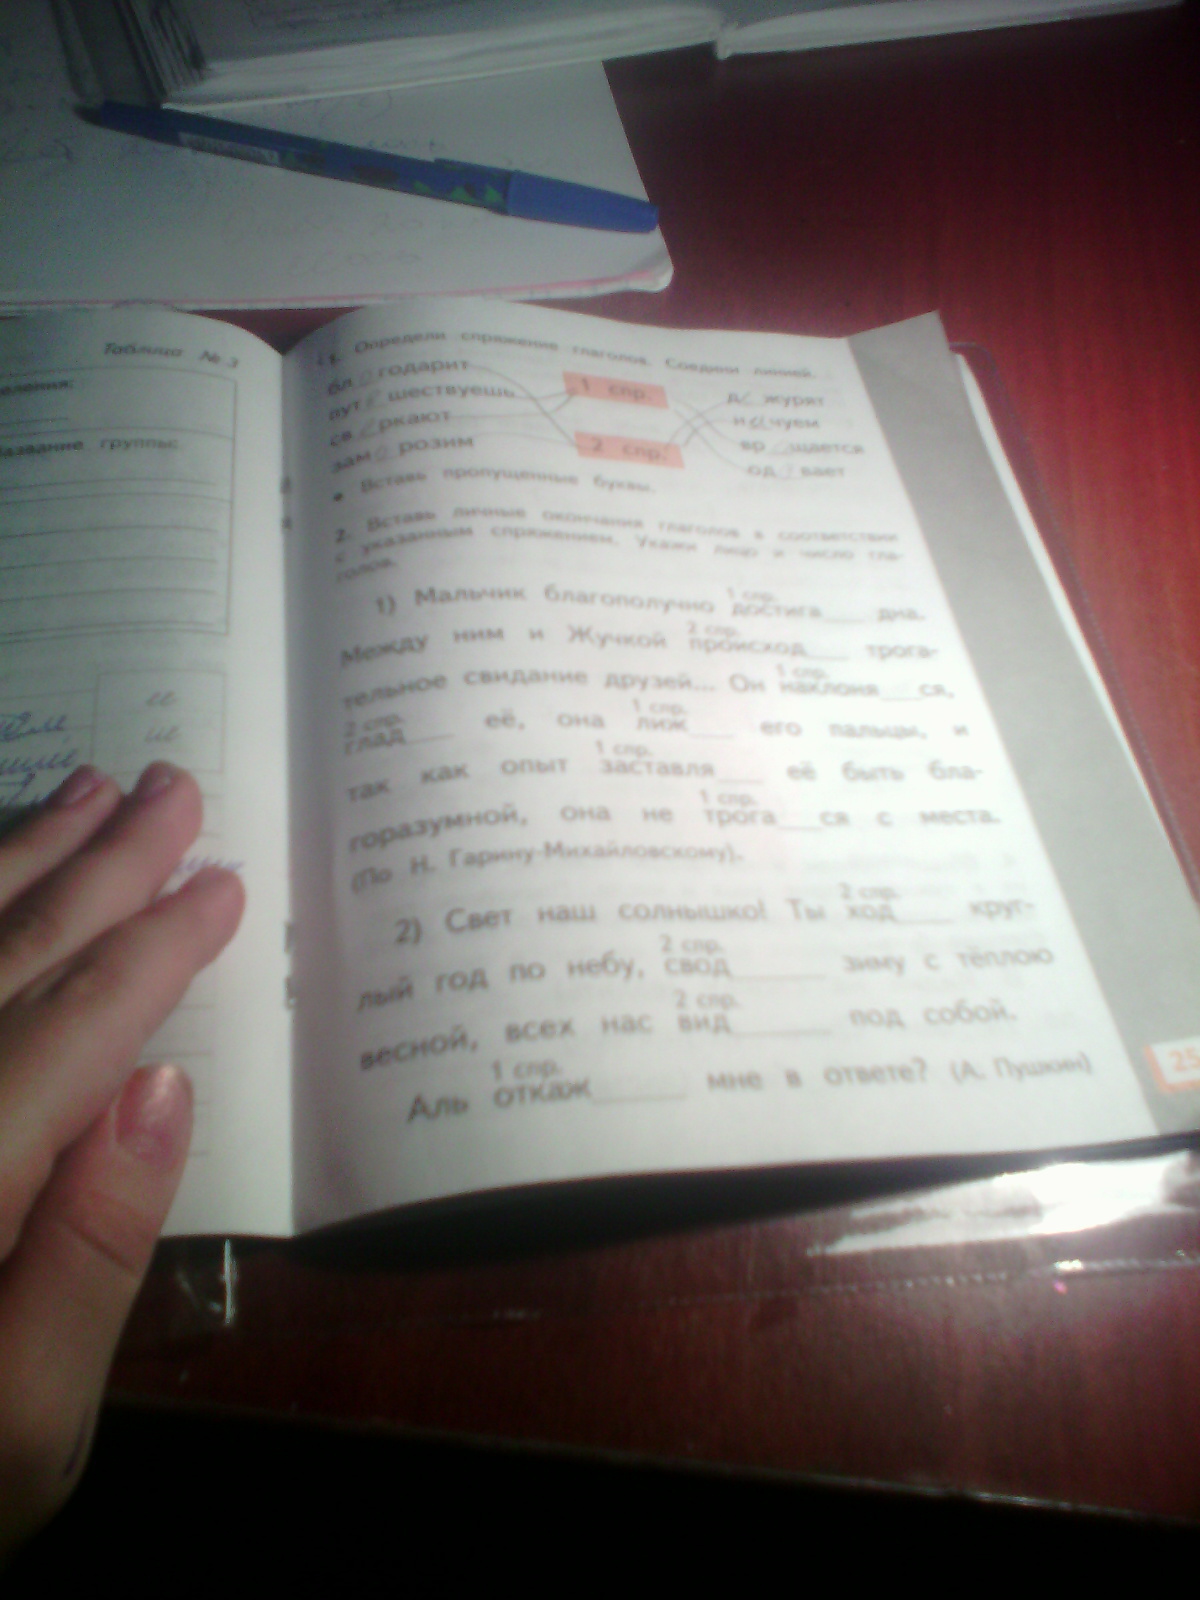 Таблица № 3
еления:
Название группы:
ее
ие
1. Определи спряжение глаголов. Соедини линией.
бл годарит
пут шествуешь
св ркают
зам о розим
1 спр.
2 спр.
д е журят
н о чуем
вр щается
од вает
• Вставь пропущенные буквы.
2. Вставь личные окончания глаголов в соответствии
с указанным спряжением. Укажи лицо и число гла-
голов.
1 спр.
1) Мальчик благополучно достига___ дна.
2 спр.
Между ним и Жучкой происход___ трога-
1 спр.
тельное свидание друзей... Он наклоня___ся,
2 спр. 1 спр.
глад___ её, она лиж___ его пальцы, и
1 спр.
так как опыт заставля___ её быть бла-
1 спр.
горазумной, она не трога___ся с места.
(По Н. Гарину-Михайловскому).
2 спр.
2) Свет наш солнышко! Ты ход___ круг-
2 спр.
лый год по небу, свод___ зиму с тёплою
2 спр.
весной, всех нас вид___ под собой.
1 спр.
Аль откаж___ мне в ответе? (А. Пушкин)
25